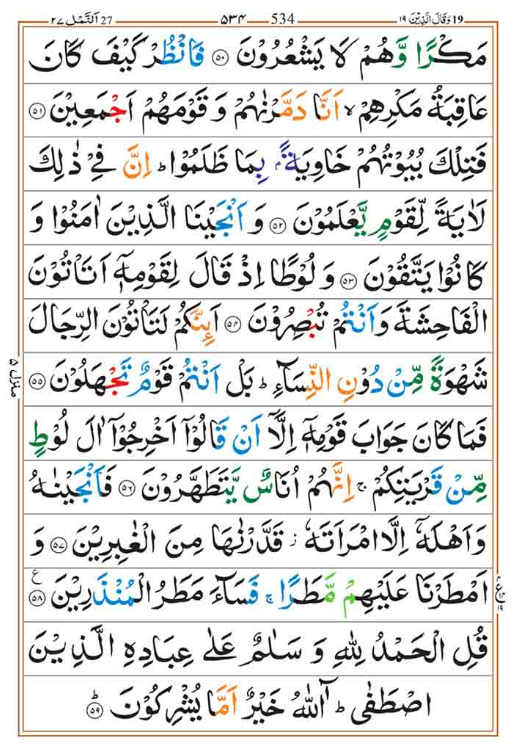 ١٩ وَقَالَ الَّذِيْنَ 19 534 ۵۳۴ 27 اَلنَّمْل ٢٧
مَكْرًا وَّهُمْ لَا يَشْعُرُوْنَ ۝۵۰ فَانْظُرْ كَيْفَ كَانَ
عَاقِبَةُ مَكْرِهِمْ ۙ اَنَّا دَمَّرْنٰهُمْ وَ قَوْمَهُمْ اَجْمَعِيْنَ ۝۵۱
فَتِلْكَ بُيُوْتُهُمْ خَاوِيَةًۢ بِمَا ظَلَمُوْا ؕ اِنَّ فِيْ ذٰلِكَ
لَاٰيَةً لِّقَوْمٍ يَّعْلَمُوْنَ ۝۵۲ وَ اَنْجَيْنَا الَّذِيْنَ اٰمَنُوْا وَ
كَانُوْا يَتَّقُوْنَ ۝۵۳ وَ لُوْطًا اِذْ قَالَ لِقَوْمِهٖۤ اَتَاْتُوْنَ
الْفَاحِشَةَ وَ اَنْتُمْ تُبْصِرُوْنَ ۝۵۴ اَىِٕنَّكُمْ لَتَاْتُوْنَ الرِّجَالَ
شَهْوَةً مِّنْ دُوْنِ النِّسَآءِ ؕ بَلْ اَنْتُمْ قَوْمٌ تَجْهَلُوْنَ ۝۵۵
فَمَا كَانَ جَوَابَ قَوْمِهٖۤ اِلَّاۤ اَنْ قَالُوْۤا اَخْرِجُوْۤا اٰلَ لُوْطٍ
مِّنْ قَرْيَتِكُمْ ۚ اِنَّهُمْ اُنَاسٌ يَّتَطَهَّرُوْنَ ۝۵۶ فَاَنْجَيْنٰهُ
وَ اَهْلَهٗۤ اِلَّا امْرَاَتَهٗ ؗ قَدَّرْنٰهَا مِنَ الْغٰبِرِيْنَ ۝۵۷ وَ
اَمْطَرْنَا عَلَيْهِمْ مَّطَرًا ۚ فَسَآءَ مَطَرُ الْمُنْذَرِيْنَ ۝۵۸
قُلِ الْحَمْدُ لِلّٰهِ وَ سَلٰمٌ عَلٰى عِبَادِهِ الَّذِيْنَ
اصْطَفٰى ؕ آٰللّٰهُ خَيْرٌ اَمَّا يُشْرِكُوْنَ ۝۵۹
منزل ۵